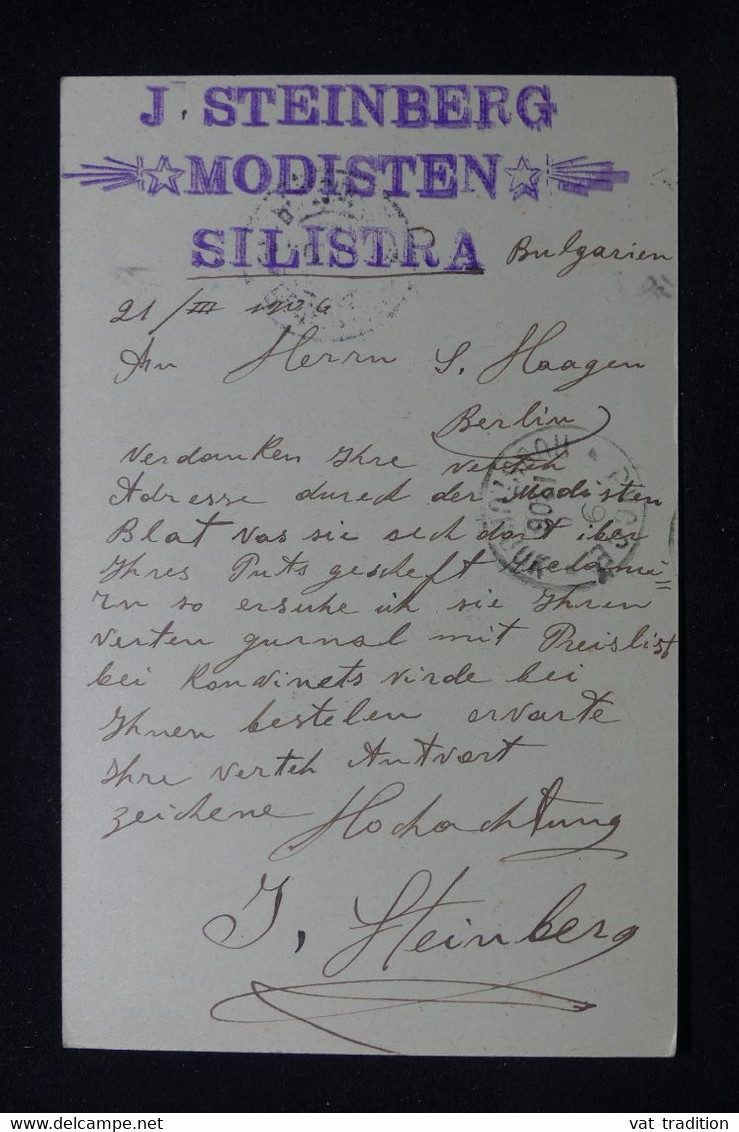 J. STEINBERG
MODISTEN
SILISTRA Bulgarien
21/III 1906
An Herrn S. Haagen
Berlin
Verdanken Ihre verteh
Adresse durch der Modisten
Blat vas sie sich dort iber
Ihres Puts gescheft
so ersuhe ich sie Ihren
verten gurnal mit Preislist
bei Konvinets virde bei
Ihnen bestelen ervarte
Ihre verteh Antvort
zeichene Hochachtung
J. Steinberg
vat tradition